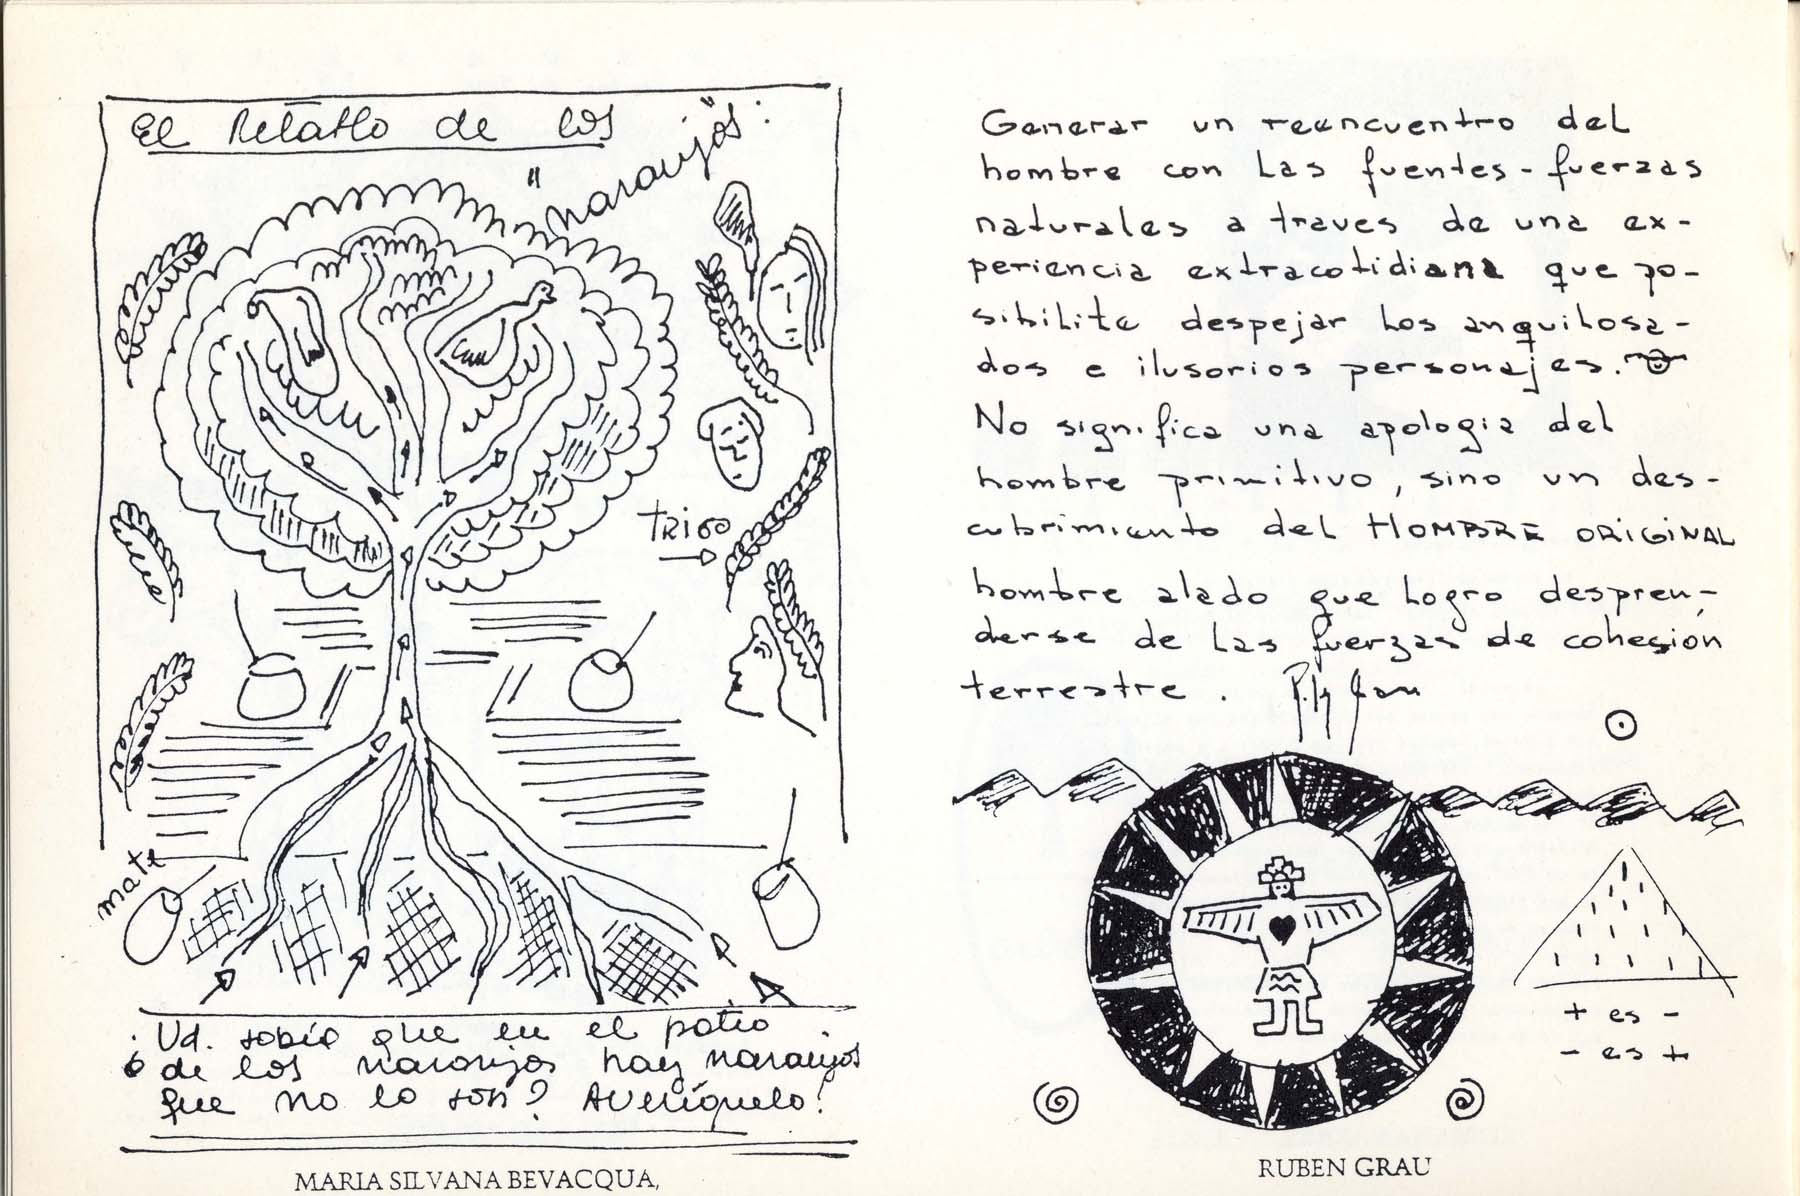 El Retablo de los
"naranjos":
trigo
mate
¿Ud. sabía que en el patio
de los naranjos hay naranjos
que no lo son? Averíguelo!
MARIA SILVANA BEVACQUA,
Generar un reencuentro del
hombre con las fuentes-fuerzas
naturales a traves de una ex-
periencia extracotidiana que po-
sibilite despejar los anquilosa-
dos e ilusorios personajes.
No significa una apologia del
hombre primitivo, sino un des-
cubrimiento del HOMBRE ORIGINAL
hombre alado que logro despren-
derse de las fuerzas de cohesión
terrestre.
+ es -
- es +
RUBEN GRAU